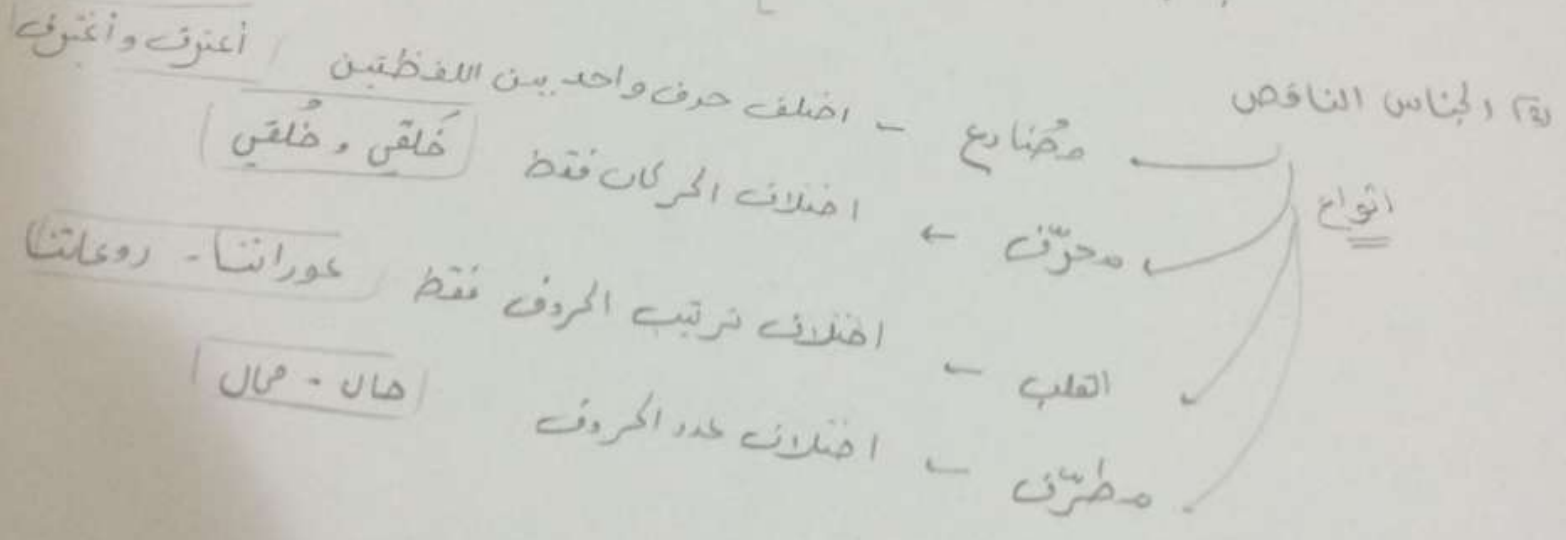 (٢) الجناس الناقص
انواع
مُضارع - اختلف حرف واحد بين اللفظتين / أعترف وأغترف
محرّف ← اختلاف الحركات فقط (خَلقي و خُلقي)
القلب - اختلاف ترتيب الحروف فقط / عوراتنا - روعاتنا
مطرّف - اختلاف عدد الحروف / حال - محال